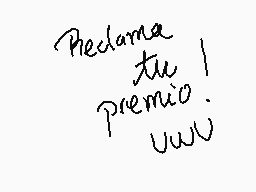 Reclama
tu
premio!
UwU